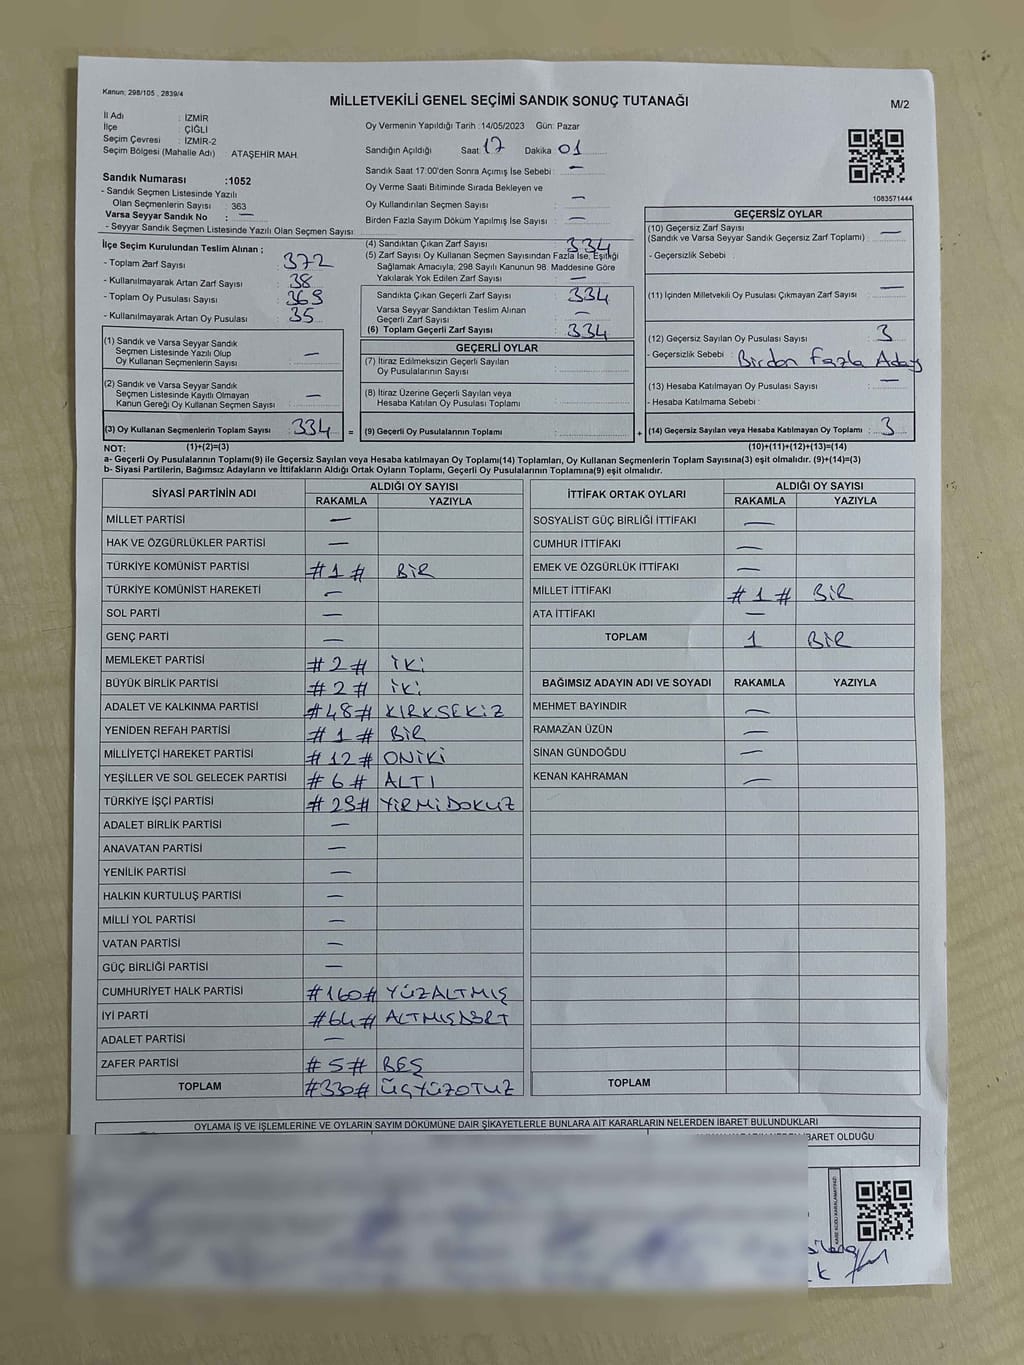 Kanun; 298/105 , 2839/4
MİLLETVEKİLİ GENEL SEÇİMİ SANDIK SONUÇ TUTANAĞI
M/2
İl Adı : İZMİR
İlçe : ÇİĞLİ
Seçim Çevresi : İZMİR-2
Seçim Bölgesi (Mahalle Adı) : ATAŞEHİR MAH.
Oy Vermenin Yapıldığı Tarih : 14/05/2023 Gün: Pazar
Sandığın Açıldığı Saat : 17 Dakika : 01
Sandık Saat 17:00'den Sonra Açımış İse Sebebi : —
Oy Verme Saati Bitiminde Sırada Bekleyen ve
Oy Kullandırılan Seçmen Sayısı : —
Birden Fazla Sayım Döküm Yapılmış İse Sayısı : —
1083571444
Sandık Numarası :1052
- Sandık Seçmen Listesinde Yazılı
Olan Seçmenlerin Sayısı : 363
Varsa Seyyar Sandık No : —
- Seyyar Sandık Seçmen Listesinde Yazılı Olan Seçmen Sayısı:
İlçe Seçim Kurulundan Teslim Alınan ;
- Toplam Zarf Sayısı : 372
- Kullanılmayarak Artan Zarf Sayısı : 38
- Toplam Oy Pusulası Sayısı : 369
- Kullanılmayarak Artan Oy Pusulası : 35
(1) Sandık ve Varsa Seyyar Sandık
Seçmen Listesinde Yazılı Olup
Oy Kullanan Seçmenlerin Sayısı : —
(2) Sandık ve Varsa Seyyar Sandık
Seçmen Listesinde Kayıtlı Olmayan
Kanun Gereği Oy Kullanan Seçmen Sayısı : —
(3) Oy Kullanan Seçmenlerin Toplam Sayısı : 334 =
(4) Sandıktan Çıkan Zarf Sayısı : 334
(5) Zarf Sayısı Oy Kullanan Seçmen Sayısından Fazla İse, Eşitliği
Sağlamak Amacıyla; 298 Sayılı Kanunun 98. Maddesine Göre
Yakılarak Yok Edilen Zarf Sayısı : —
Sandıkta Çıkan Geçerli Zarf Sayısı : 334
Varsa Seyyar Sandıktan Teslim Alınan
Geçerli Zarf Sayısı : —
(6) Toplam Geçerli Zarf Sayısı : 334
GEÇERLİ OYLAR
(7) İtiraz Edilmeksizin Geçerli Sayılan
Oy Pusulalarının Sayısı :
(8) İtiraz Üzerine Geçerli Sayılan veya
Hesaba Katılan Oy Pusulası Toplamı :
(9) Geçerli Oy Pusulalarının Toplamı : +
GEÇERSİZ OYLAR
(10) Geçersiz Zarf Sayısı : —
(Sandık ve Varsa Seyyar Sandık Geçersiz Zarf Toplamı)
- Geçersizlik Sebebi :
(11) İçinden Milletvekili Oy Pusulası Çıkmayan Zarf Sayısı : —
(12) Geçersiz Sayılan Oy Pusulası Sayısı : 3
- Geçersizlik Sebebi : Birden Fazla Aday
(13) Hesaba Katılmayan Oy Pusulası Sayısı : —
- Hesaba Katılmama Sebebi :
(14) Geçersiz Sayılan veya Hesaba Katılmayan Oy Toplamı : 3
NOT: (1)+(2)=(3)
(10)+(11)+(12)+(13)=(14)
a- Geçerli Oy Pusulalarının Toplamı(9) ile Geçersiz Sayılan veya Hesaba katılmayan Oy Toplamı(14) Toplamları, Oy Kullanan Seçmenlerin Toplam Sayısına(3) eşit olmalıdır. (9)+(14)=(3)
b- Siyasi Partilerin, Bağımsız Adayların ve İttifakların Aldığı Ortak Oyların Toplamı, Geçerli Oy Pusulalarının Toplamına(9) eşit olmalıdır.
SİYASİ PARTİNİN ADI ALDIĞI OY SAYISI
RAKAMLA YAZIYLA
MİLLET PARTİSİ —
HAK VE ÖZGÜRLÜKLER PARTİSİ —
TÜRKİYE KOMÜNİST PARTİSİ #1# BİR
TÜRKİYE KOMÜNİST HAREKETİ —
SOL PARTİ —
GENÇ PARTİ —
MEMLEKET PARTİSİ #2# İKİ
BÜYÜK BİRLİK PARTİSİ #2# İKİ
ADALET VE KALKINMA PARTİSİ #48# KIRKSEKİZ
YENİDEN REFAH PARTİSİ #1# BİR
MİLLİYETÇİ HAREKET PARTİSİ #12# ONİKİ
YEŞİLLER VE SOL GELECEK PARTİSİ #6# ALTI
TÜRKİYE İŞÇİ PARTİSİ #29# YİRMİDOKUZ
ADALET BİRLİK PARTİSİ —
ANAVATAN PARTİSİ —
YENİLİK PARTİSİ —
HALKIN KURTULUŞ PARTİSİ —
MİLLİ YOL PARTİSİ —
VATAN PARTİSİ —
GÜÇ BİRLİĞİ PARTİSİ —
CUMHURİYET HALK PARTİSİ #160# YÜZALTMIŞ
İYİ PARTİ #64# ALTMIŞDÖRT
ADALET PARTİSİ —
ZAFER PARTİSİ #5# BEŞ
TOPLAM #330# ÜÇYÜZOTUZ
İTTİFAK ORTAK OYLARI ALDIĞI OY SAYISI
RAKAMLA YAZIYLA
SOSYALİST GÜÇ BİRLİĞİ İTTİFAKI —
CUMHUR İTTİFAKI —
EMEK VE ÖZGÜRLÜK İTTİFAKI —
MİLLET İTTİFAKI #1# BİR
ATA İTTİFAKI —
TOPLAM 1 BİR
BAĞIMSIZ ADAYIN ADI VE SOYADI RAKAMLA YAZIYLA
MEHMET BAYINDIR —
RAMAZAN ÜZÜN —
SİNAN GÜNDOĞDU —
KENAN KAHRAMAN —
TOPLAM
OYLAMA İŞ VE İŞLEMLERİNE VE OYLARIN SAYIM DÖKÜMÜNE DAİR ŞİKAYETLERLE BUNLARA AİT KARARLARIN NELERDEN İBARET BULUNDUKLARI
BARET OLDUĞU